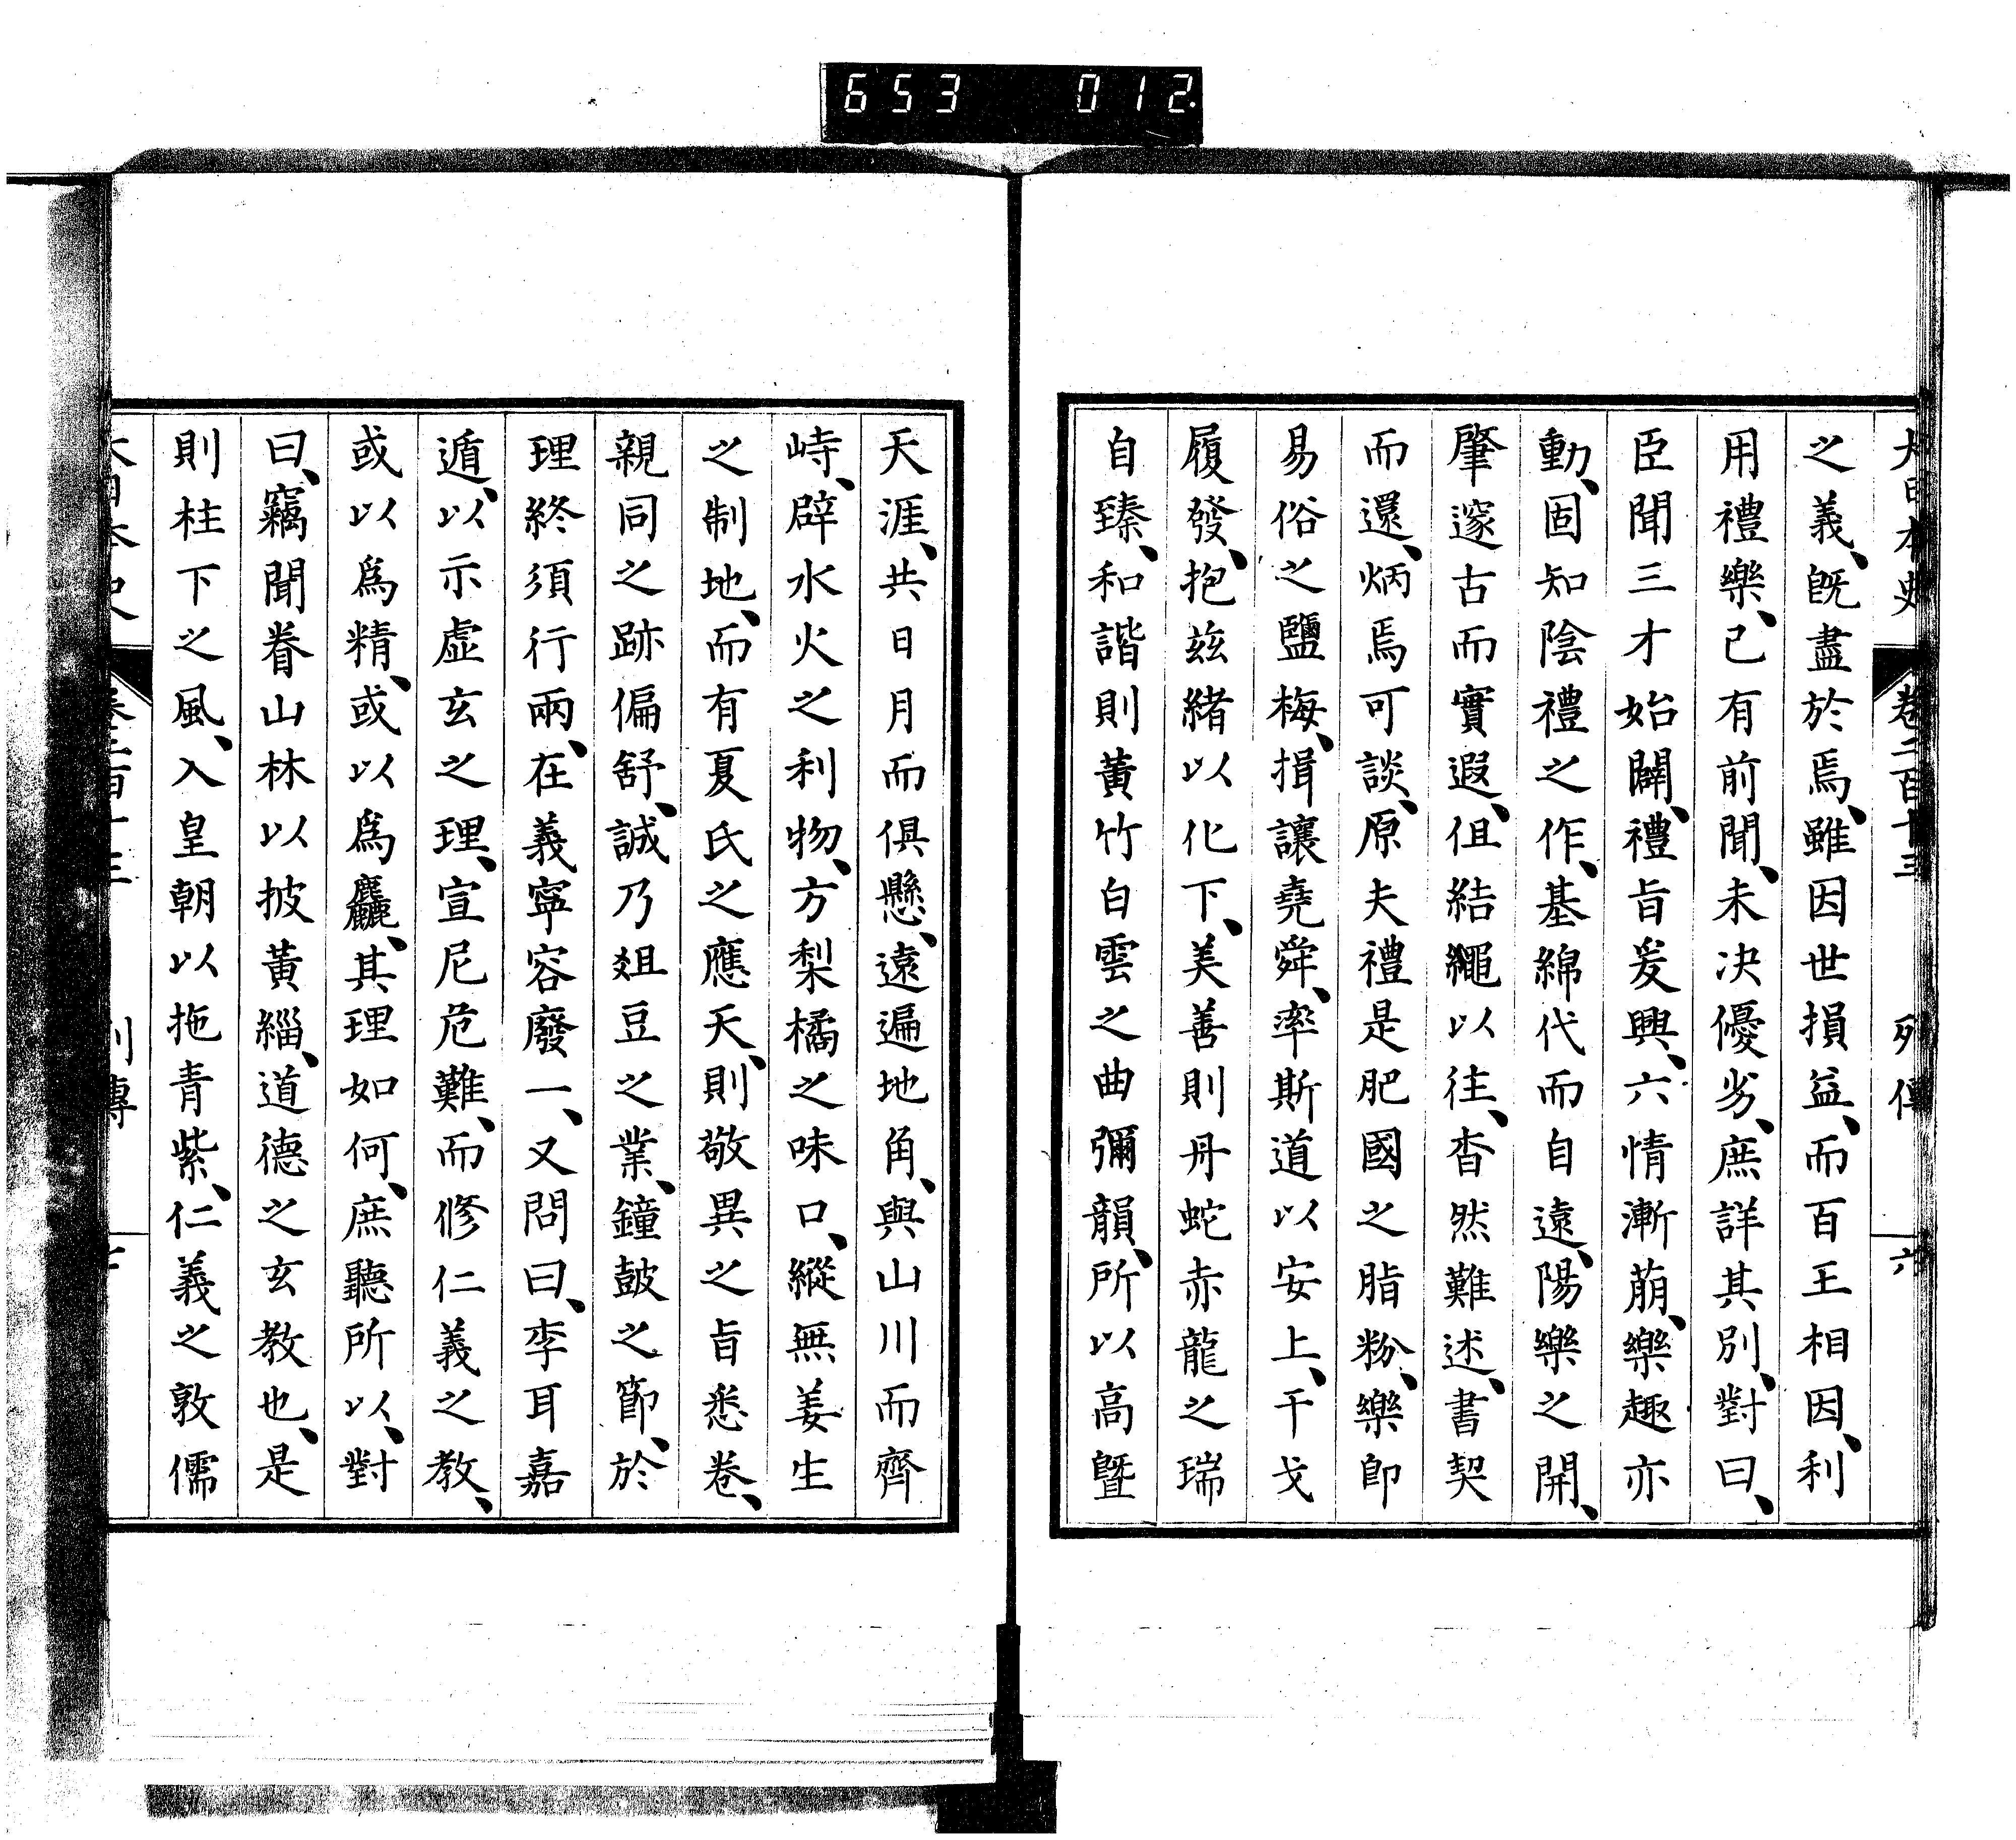 653 012
大日本史 卷二百十三 列傳 六
之義、既盡於焉、雖因世損益、而百王相因、利
用禮樂、已有前聞、未決優劣、庶詳其別、對曰、
臣聞三才始闢、禮旨爰興、六情漸萠、樂趣亦
動、固知陰禮之作、基綿代而自遠、陽樂之開、
肇邃古而實遐、但結繩以往、杳然難述、書契
而還、炳焉可談、原夫禮是肥國之脂粉、樂卽
易俗之鹽梅、揖讓堯舜、率斯道以安上、干戈
履發、抱茲緒以化下、美善則丹蛇赤龍之瑞
自臻、和諧則黃竹白雲之曲彌韻、所以高曁
天涯、共日月而俱懸、遠遍地角、與山川而齊
峙、辟水火之利物、方梨橘之味口、縱無姜生
之制地、而有夏氏之應天、則敬異之旨悉卷、
親同之跡偏舒、誠乃俎豆之業、鐘鼓之節、於
理終須行兩、在義寧容廢一、又問曰、李耳嘉
遁、以示虛玄之理、宣尼危難、而修仁義之教、
或以爲精、或以爲麤、其理如何、庶聽所以、對
曰、竊聞眷山林以披黃緇、道德之玄教也、是
則柱下之風、入皇朝以拖青紫、仁義之敦儒